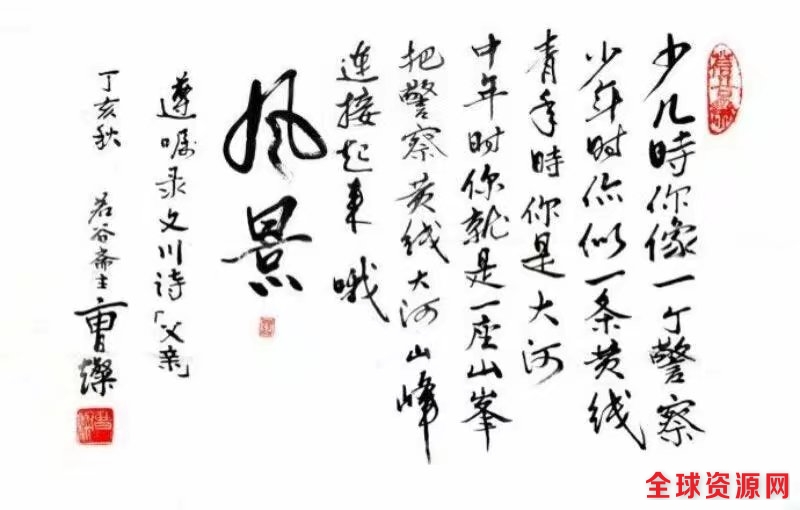 少儿時你像一个警察
少年时你似一条黄线
青年時你是大河
中年时你就是一座山峯
把警察黄线大河山峰
连接起来哦
风景
遵嘱录文川诗「父亲」
丁亥秋
若谷斋主曹灿
全球资源网